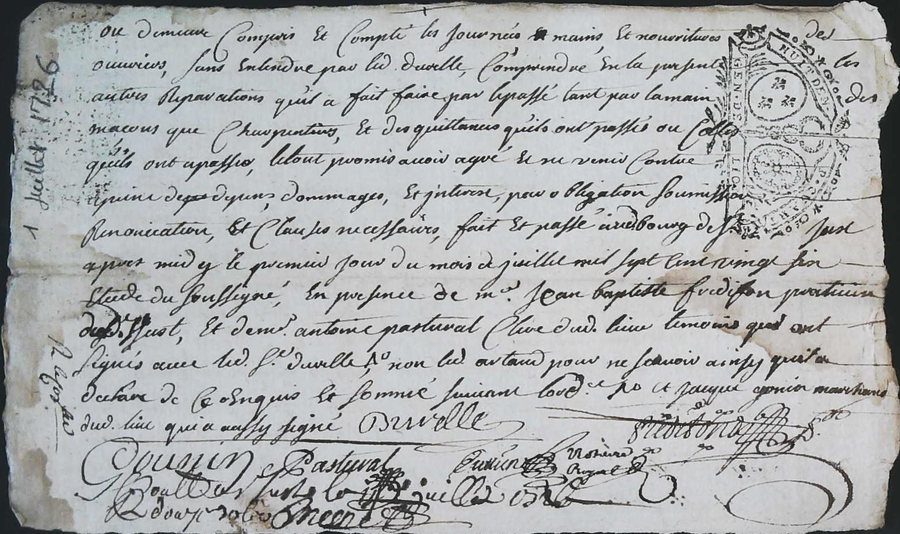 ou demeure Compris et Compté les journées mains et nourritures des
ouvriers, sans Entendre par led. duvelle, Comprendre En la presente les
autres Reparations qu'il a fait faire par le passé tant par la main des
macons que Charpentiers, Et des quittances qu'ils ont passés ou
qu'ils ont a passer, le tout promis avoir agré et ne venir Contre
a peine de depens, dommages, et interest, par obligation soumission
Renonciation, et Clauses necessaires, fait et passé bourg de St just
apres midy le premier jour du mois de juillet mil sept cent vingt six
Etude du soussigné, En presence de mre. Jean baptiste praticien
dud. St just, et de mr. antoine pastural Clerc dud. lieu temoins qui ont
signés avec led. Sr. duvelle non led. artaud pour ne scavoir ainsy qu'il a
declaré de ce enquis et sommé suivant lord.ce et jacque gonin marchand
dud. lieu qui a aussy signé Duvelle
Gounin Pastural Notaire Royal
juillet
douze sols
1 Juillet 1726
GEN. D. LION
HUIT DEN.